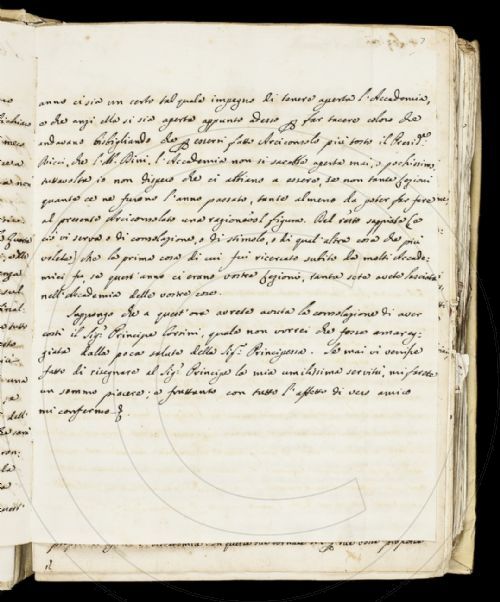 anno ci sia un certo tal quale impegno di tenere aperta l'Accademia,
o che anzi ella si sia aperta appunto adesso p far tacere coloro che
andavano bisbigliando che p essersi fatto Arciconsolo più tosto il Presid.te
Ricci, che l'Ab. Bini, l'Accademia non si sarebbe aperta mai, o pochissimo,
tuttavolta io non dispero che ci abbiano a essere, se non tante Lezioni
quante ce ne furono l'anno passato, tante almeno da poter far fare
al presente Arciconsolato una ragionevol figura. Del resto sappiate (e
ciò vi serva o di consolazione, o di stimolo, o di qual'altra cosa che più
volete) che la prima cosa di cui fui ricercato subito da molti Accade-
mici fu, se quest'anno ci erano vostre Lezioni, tanta sete avete lasciata
nell'Accademia delle vostre cose.
Suppongo che a quest'ore avrete avuta la consolazione di aver
costì il Sig.r Principe Corsini, quale non vorrei che fosse amareg-
giata dalla poca salute della Sig.ra Principessa. Se mai vi venisse
fatto di rassegnare al Sig.r Principe la mia umilissima servitù, mi farete
un sommo piacere; e frattanto con tutto l'affetto di vero amico
mi confermo